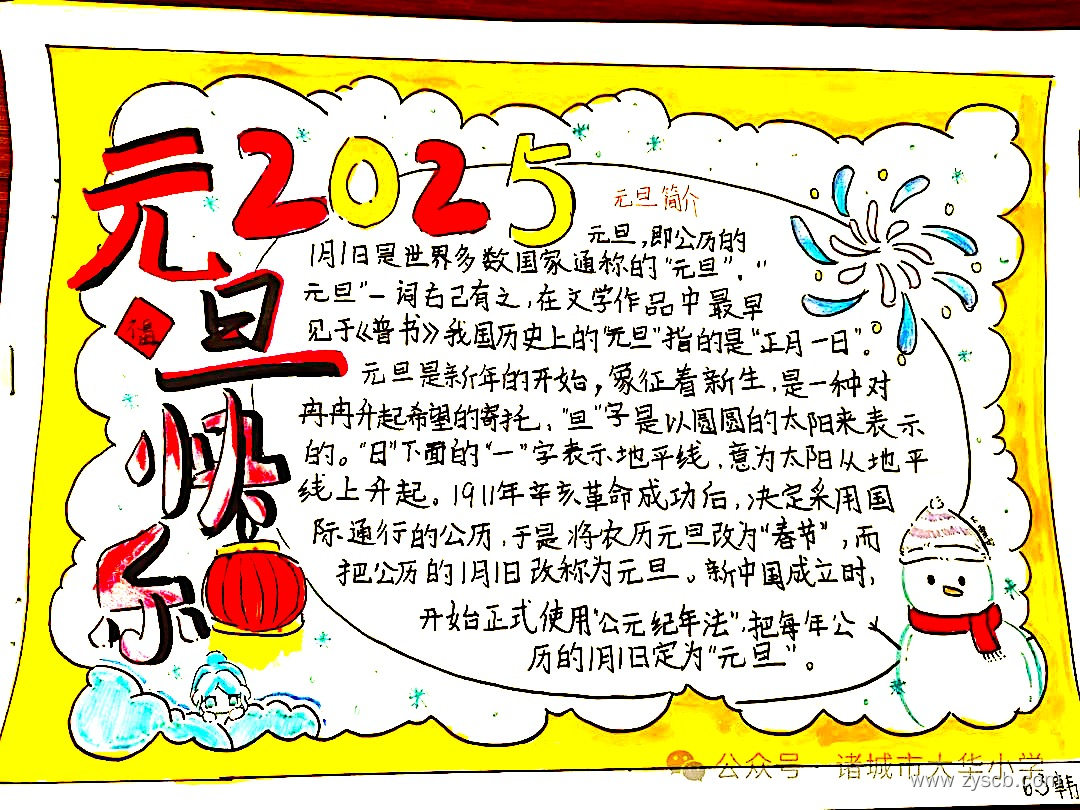 2025
元旦
福
快乐
元旦简介
元旦，即公历的
1月1日是世界多数国家通称的“元旦”。“
元旦”一词右己有之，在文学作品中最早
见于《晋书》我国历史上的“元旦”指的是“正月一日”。
元旦是新年的开始，象征着新生，是一种对
冉冉升起希望的寄托，“旦”字是以圆圆的太阳来表示
的。“日”下面的“一”字表示地平线，意为太阳从地平
线上升起。1911年辛亥革命成功后，决定采用国
际通行的公历，于是将农历元旦改为“春节”，而
把公历的1月1日改称为元旦。新中国成立时，
开始正式使用“公元纪年法”，把每年公
历的1月1日定为“元旦”。
公众号·诸城市大华小学
www.zyscb.com
63韩